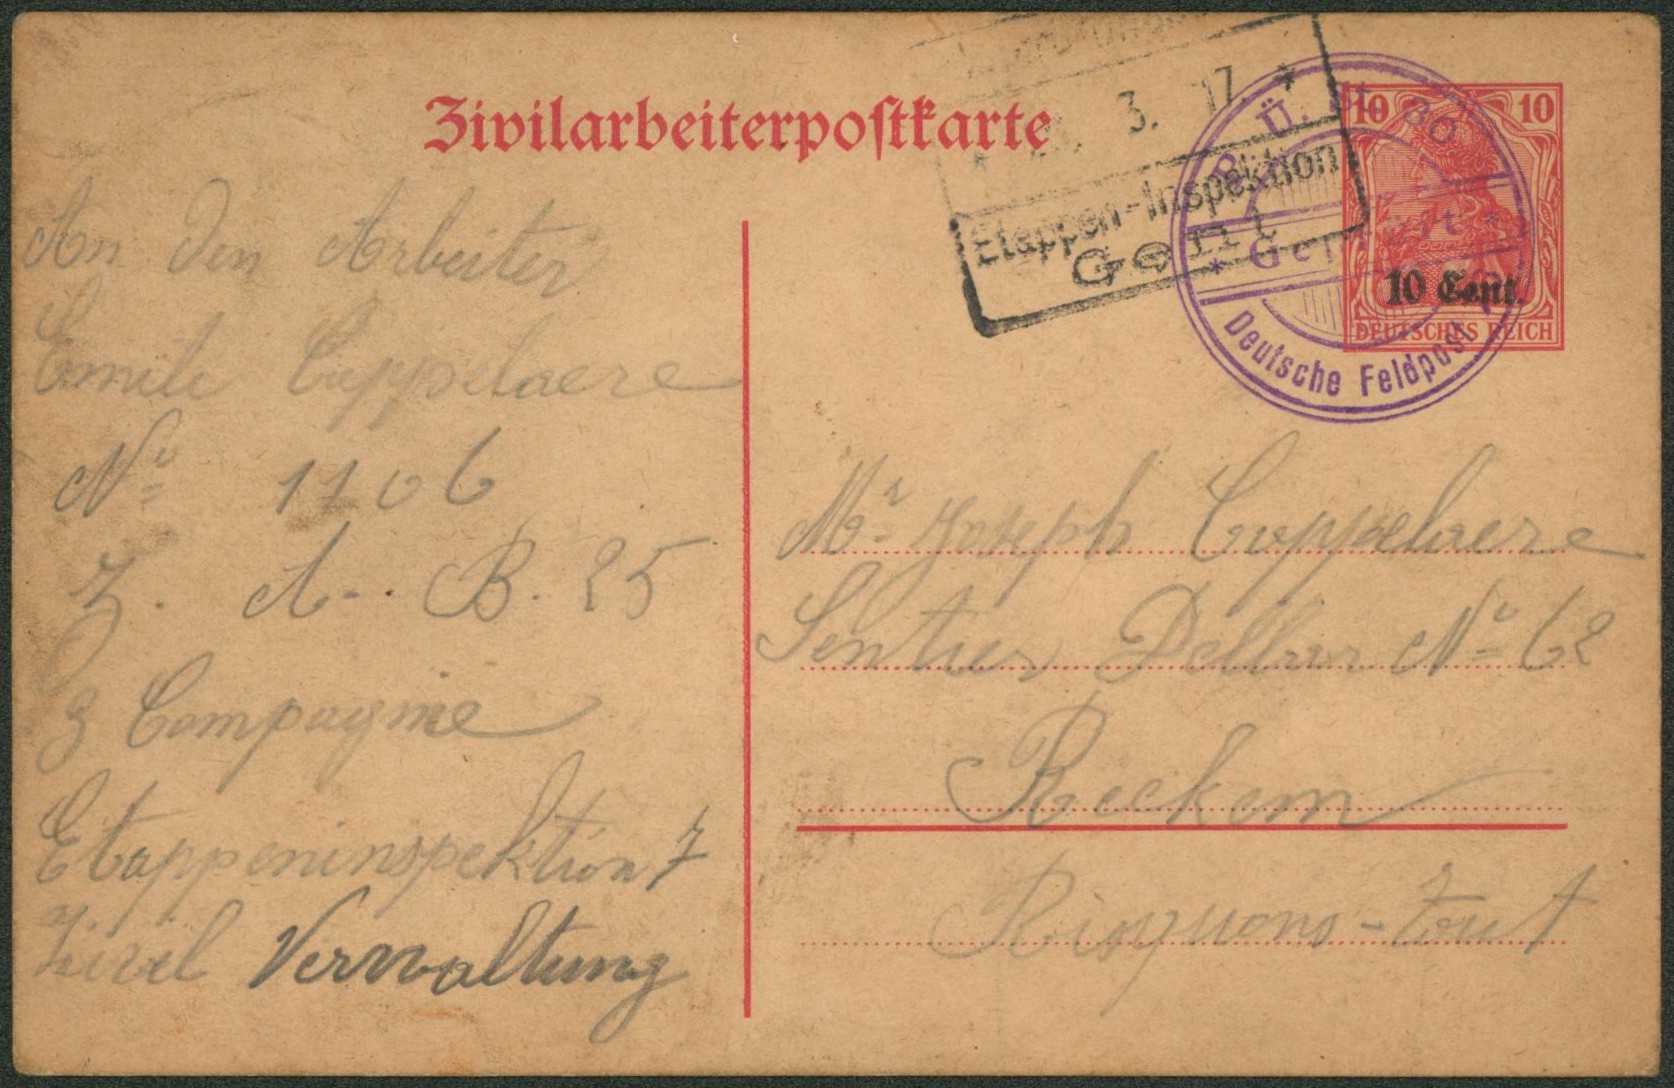 Zivilarbeiterpostkarte
3. 17. *
Etappen-Inspektion
Gent
P. Ü. St. 30
* Gent *
Deutsche Feldpost
10 10
10 Cent.
DEUTSCHES REICH
An Den Arbeiter
Emile Cuppelaere
No 1106
Z. A. B. 25
3 Compagnie
Etappeninspektion 7
Zivil Verwaltung
Mr Joseph Cuppelaere
Sentier No 62
Reckem
Risquons-Tout